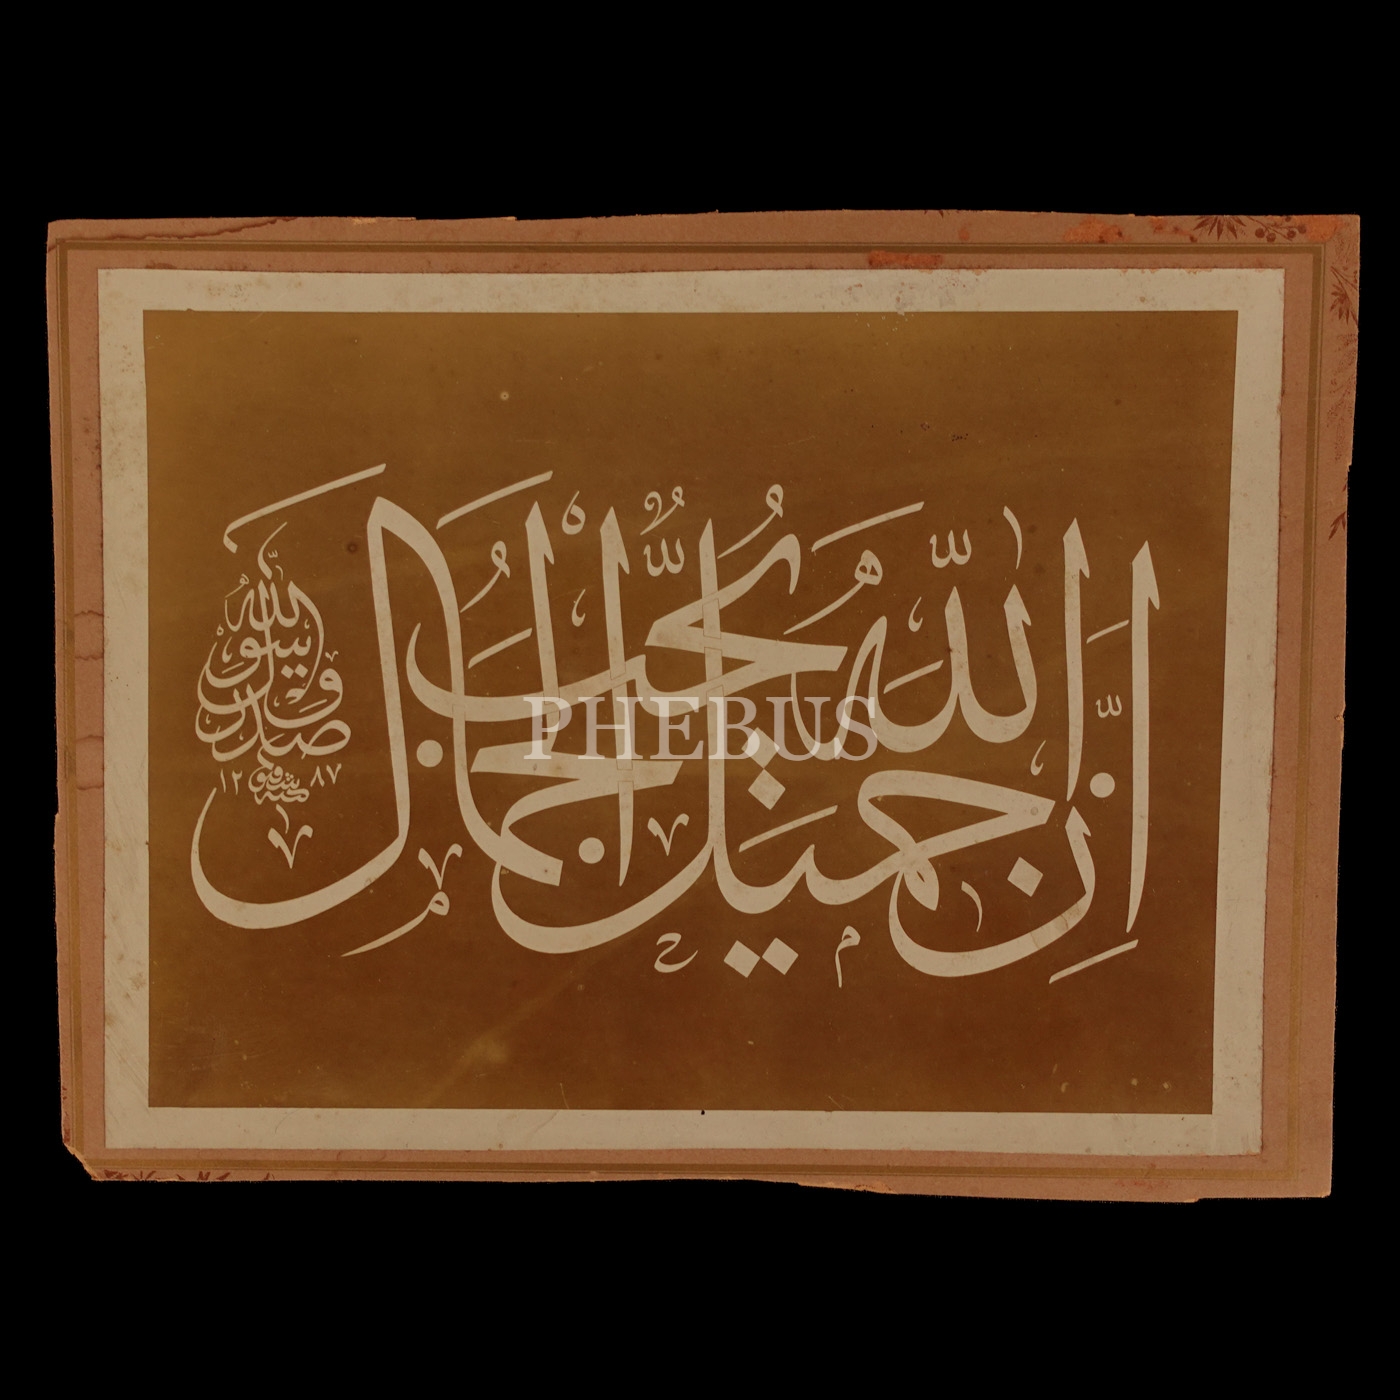 إِنَّ اللّٰهَ جَمِيلٌ يُحِبُّ الْجَمَالَ
صدق رسول الله
كتبه شفيق
١٢٨٧
PHEBUS